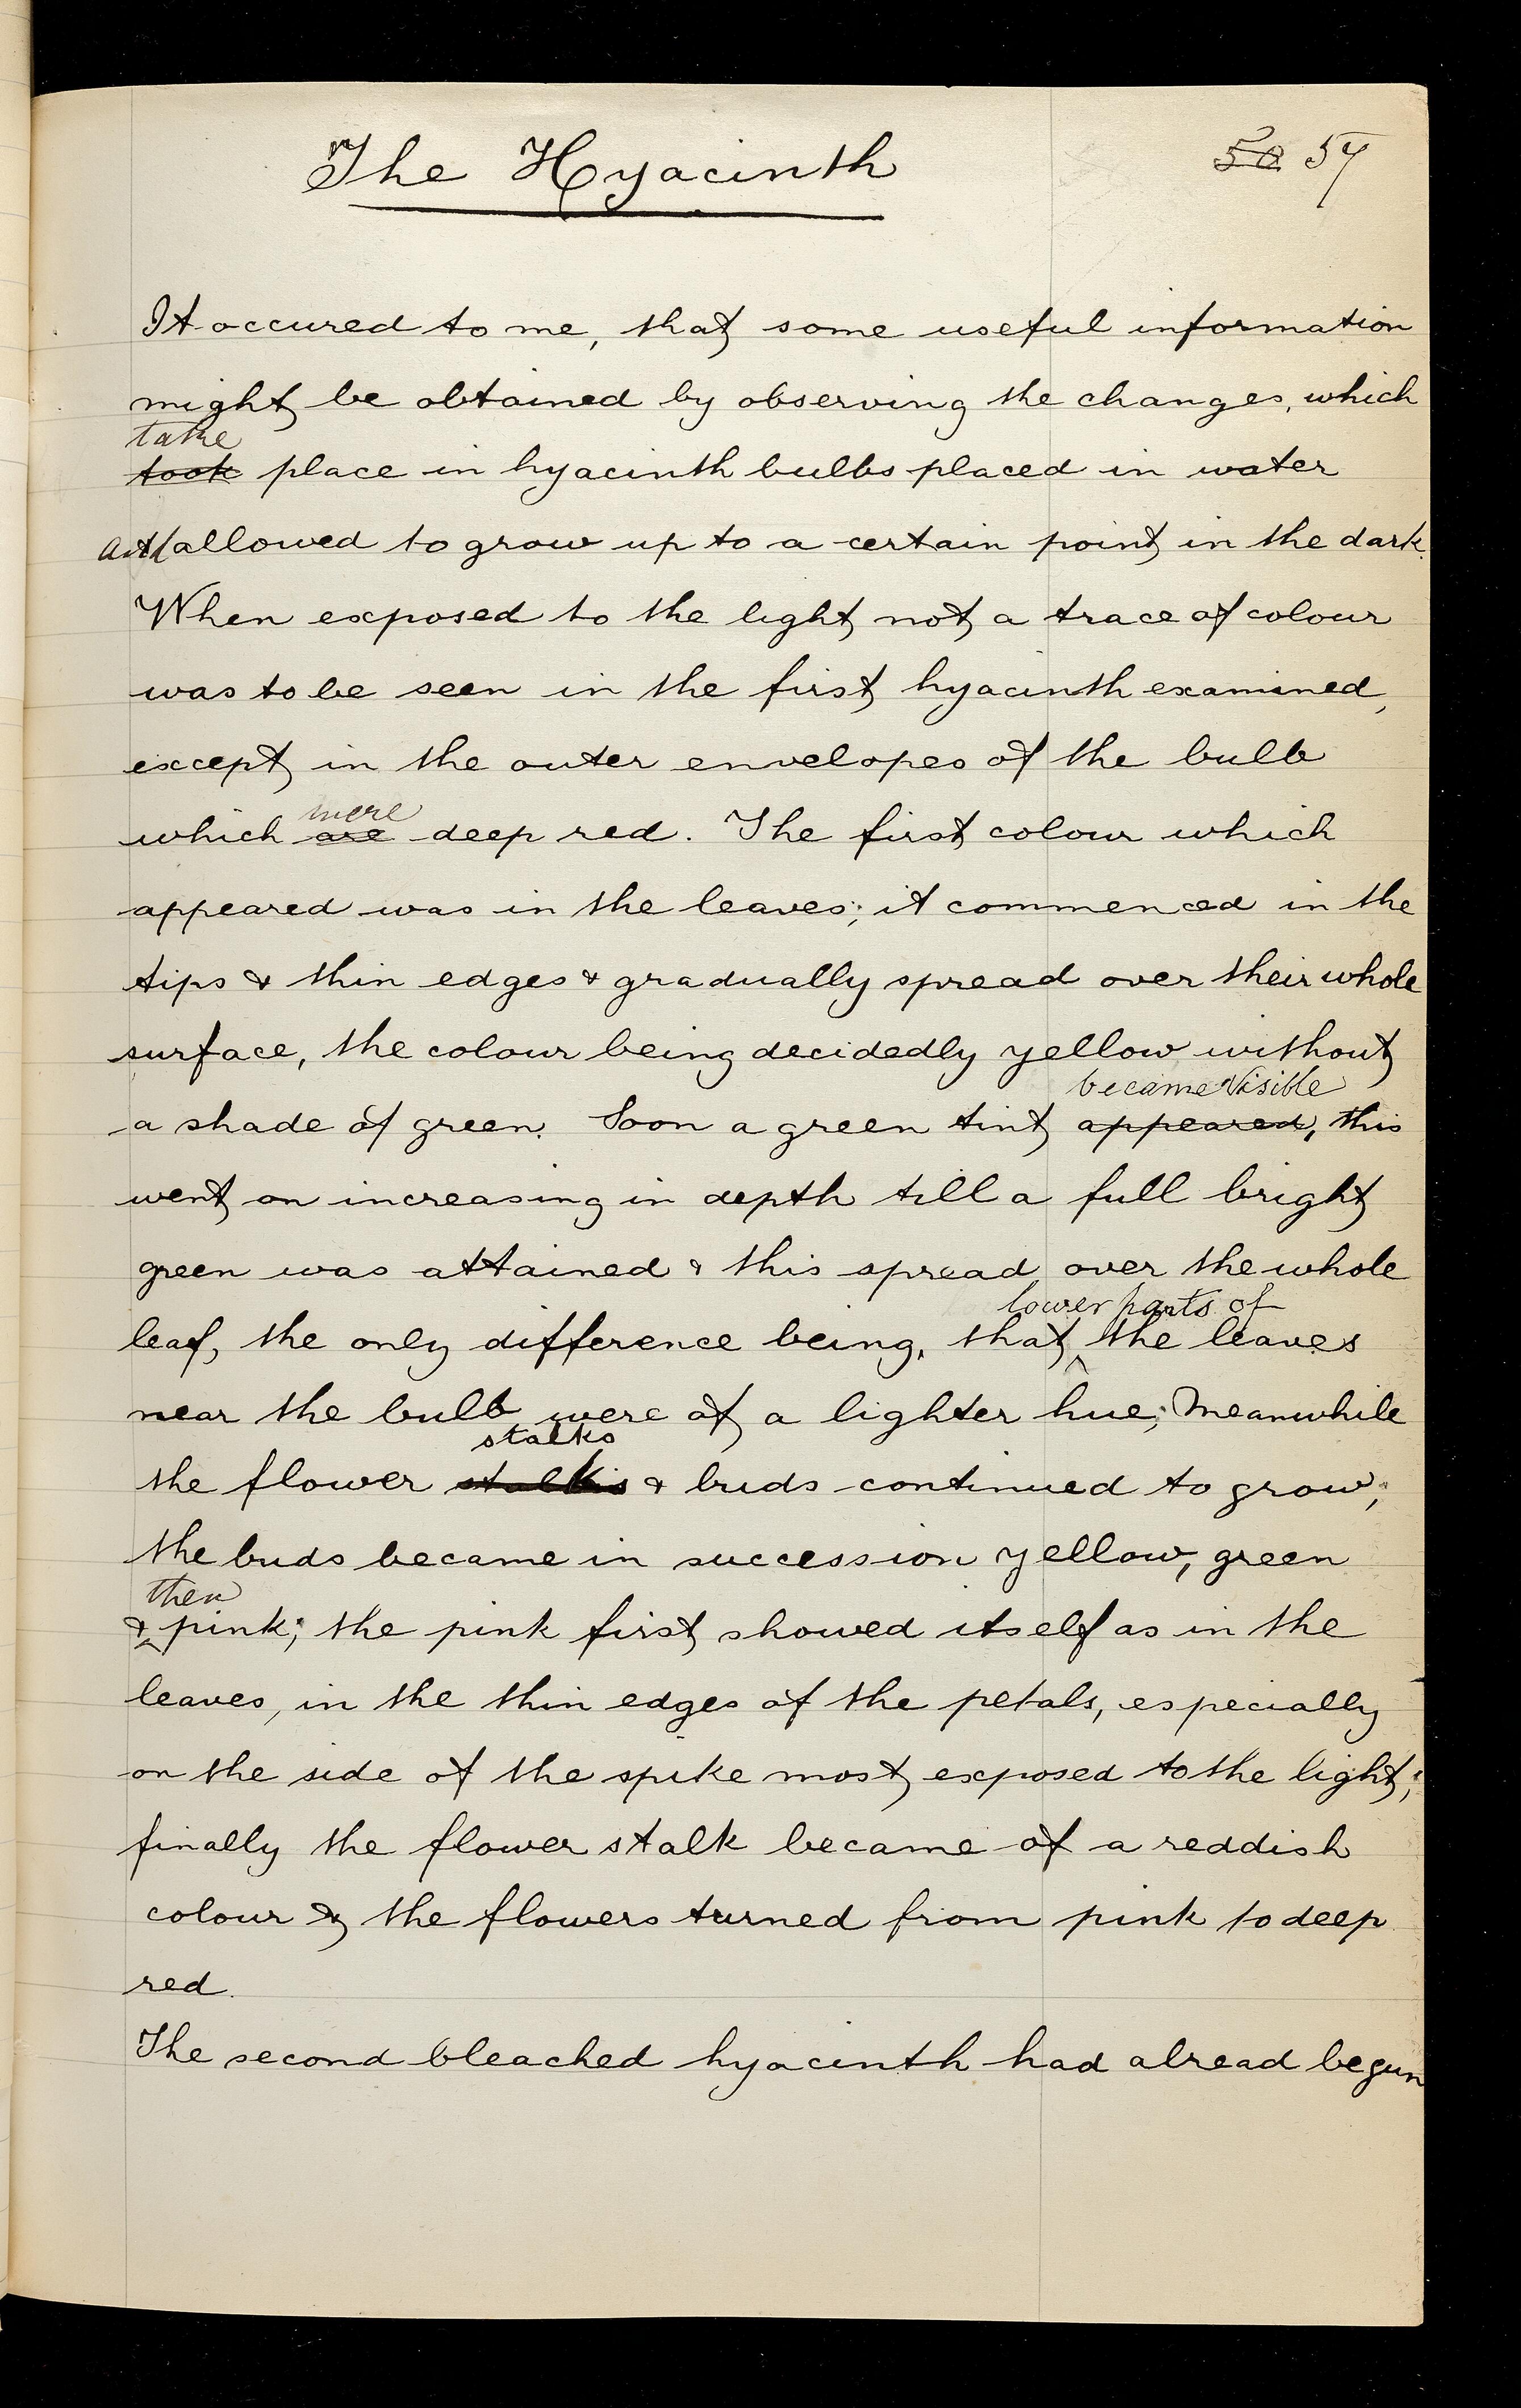 The Hyacinth
50 57
It occured to me, that some useful information
might be obtained by observing the changes, which
take
took place in hyacinth bulbs placed in water
and allowed to grow up to a certain point in the dark.
When exposed to the light not a trace of colour
was to be seen in the first hyacinth examined,
except in the outer envelopes of the bulb
were
which are deep red. The first colour which
appeared was in the leaves; it commenced in the
tips & thin edges & gradually spread over their whole
surface, the colour being decidedly yellow without
became visible
a shade of green. Soon a green tint appeared, this
went on increasing in depth till a full bright
green was attained & this spread over the whole
lower parts of
leaf, the only difference being, that ^ the leaves
near the bulb were of a lighter hue; Meanwhile
stalks
the flower stalks & buds continued to grow;
the buds became in succession yellow, green
then
& ^ pink; the pink first showed itself as in the
leaves, in the thin edges of the petals, especially
on the side of the spike most exposed to the light;
finally the flower stalk became of a reddish
colour & the flowers turned from pink to deep
red.
The second bleached hyacinth had alread begun